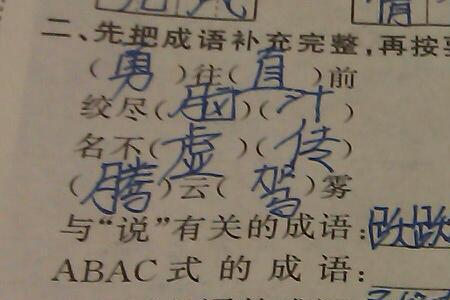 二、先把成语补充完整,再按
(勇)往(直)前
绞尽(脑)(汁)
名不(虚)(传)
(腾)云(驾)雾
与“说”有关的成语:
ABAC式的成语: